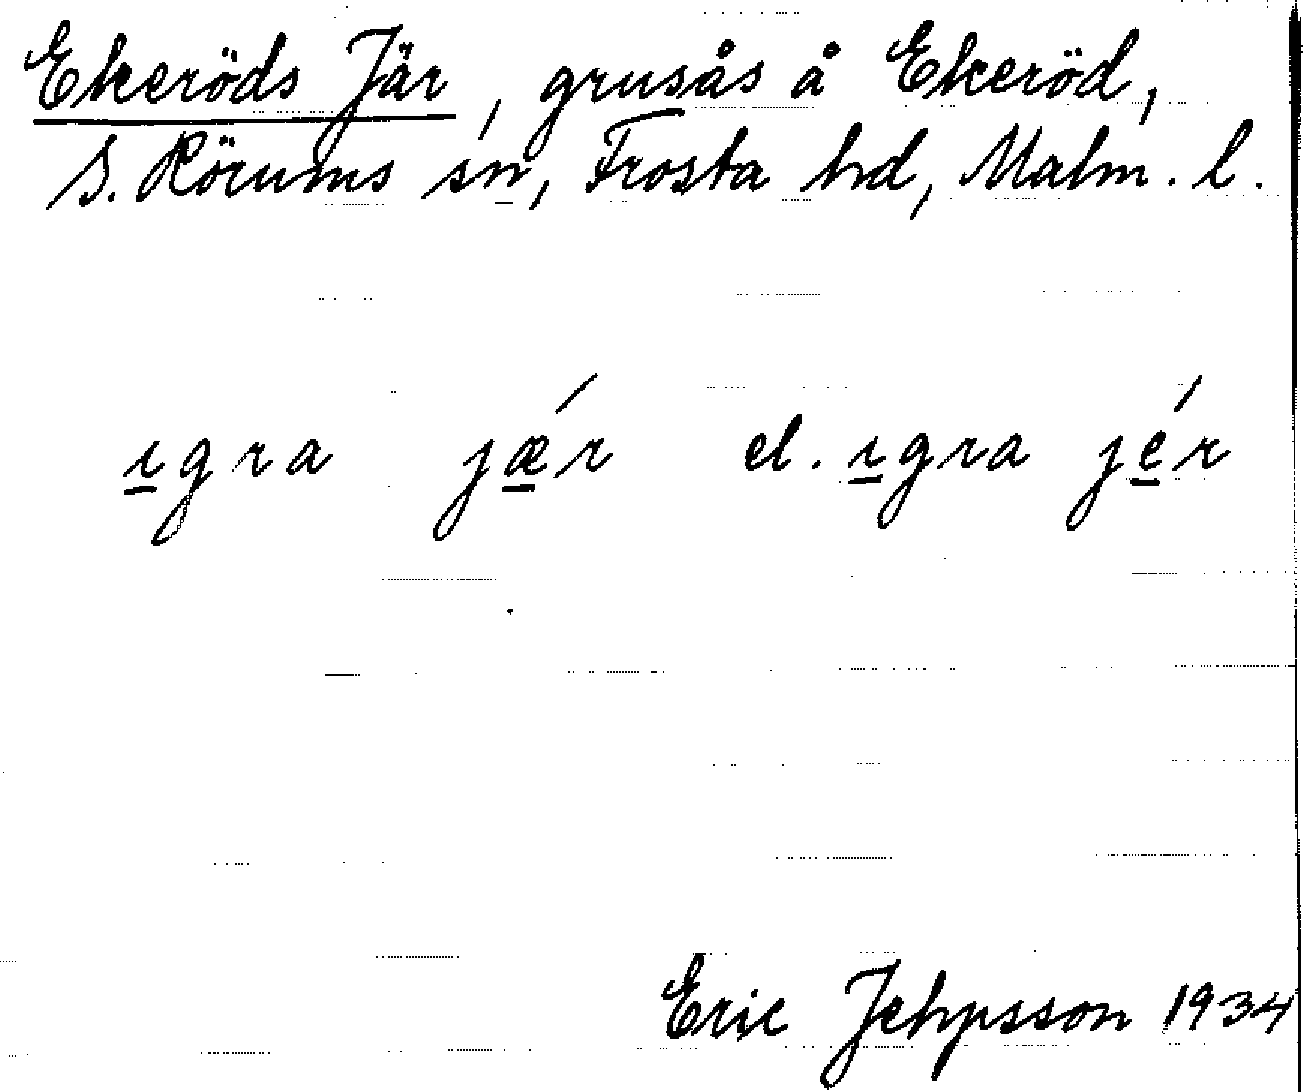 Ekeröds Jär, grusås å Ekeröd,
S. Rörums sn, Frosta hd, Malm. l.
ı̱gra jǽ̱r el. ı̱gra jé̱r
Eric Jehpsson 1934